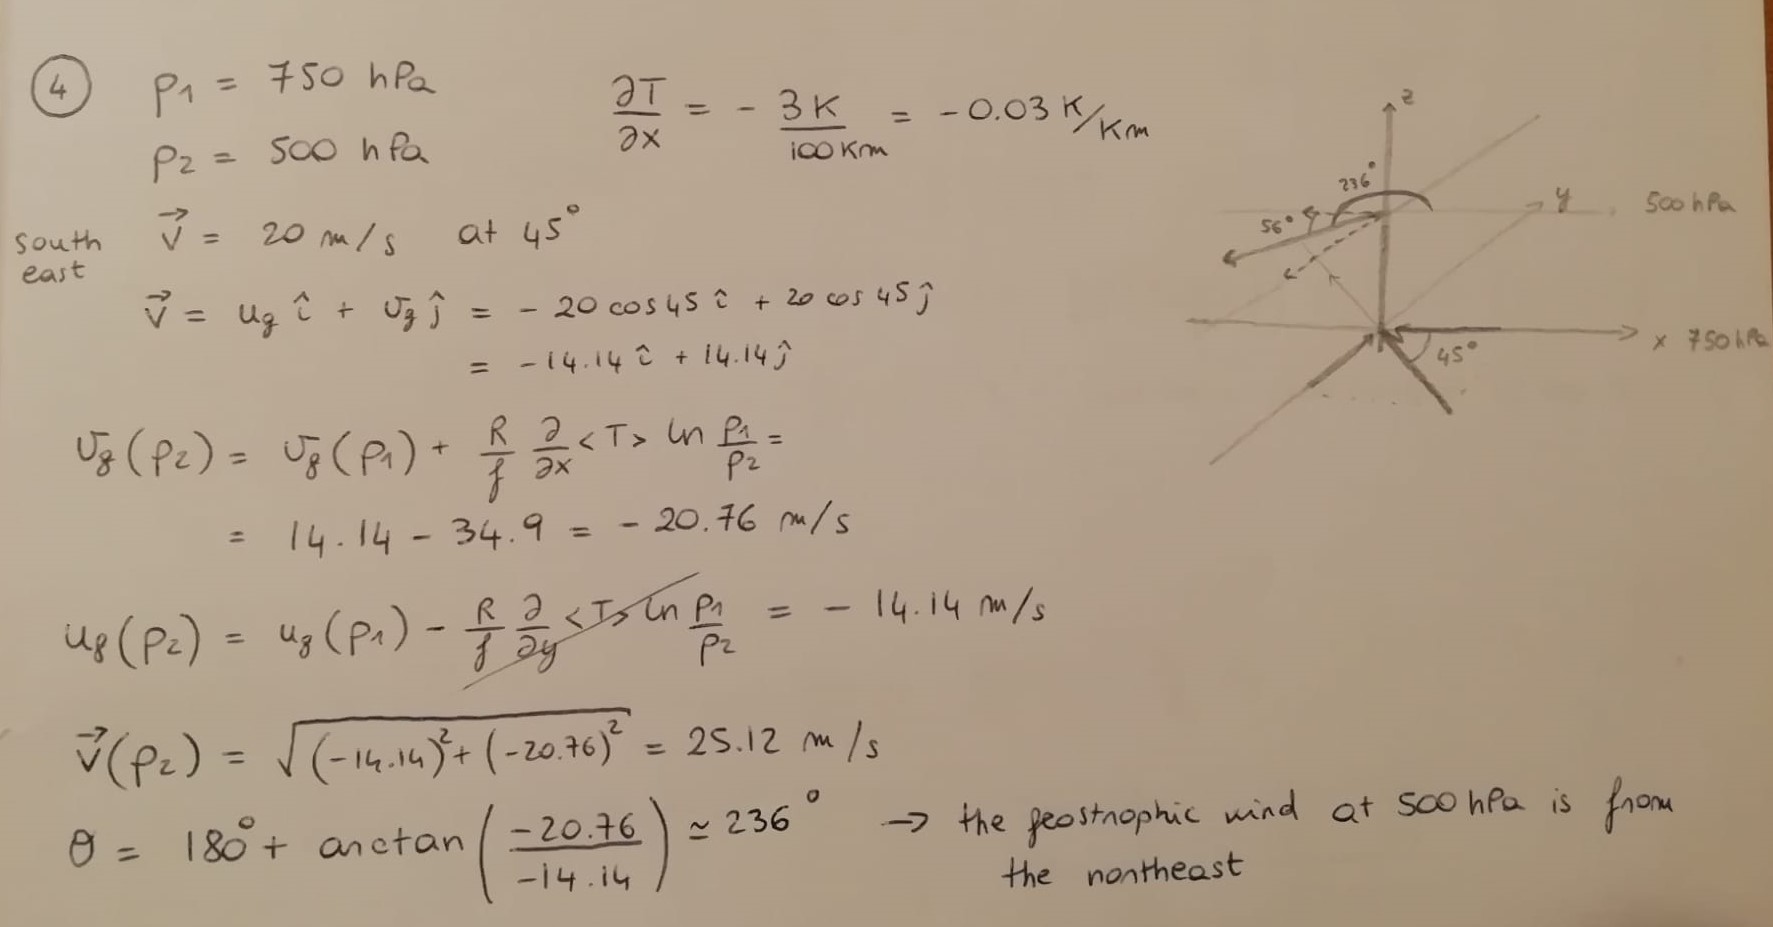 4
p1 = 750 hPa
p2 = 500 hPa
∂T/∂x = - 3K/100 Km = - 0.03 K/Km
south east
V⃗ = 20 m/s at 45°
V⃗ = ug î + vg ĵ = - 20 cos 45 î + 20 cos 45 ĵ
= -14.14 î + 14.14 ĵ
vg(p2) = vg(p1) + R/f ∂/∂x <T> ln p1/p2 =
= 14.14 - 34.9 = - 20.76 m/s
ug(p2) = ug(p1) - R/f ∂/∂y <T> ln p1/p2 = - 14.14 m/s
V⃗(p2) = √((-14.14)² + (-20.76)²) = 25.12 m/s
θ = 180° + arctan(-20.76/-14.14) ≃ 236° → the geostrophic wind at 500 hPa is from
the northeast
z
236°
y
500 hPa
56°
x 750 hPa
45°